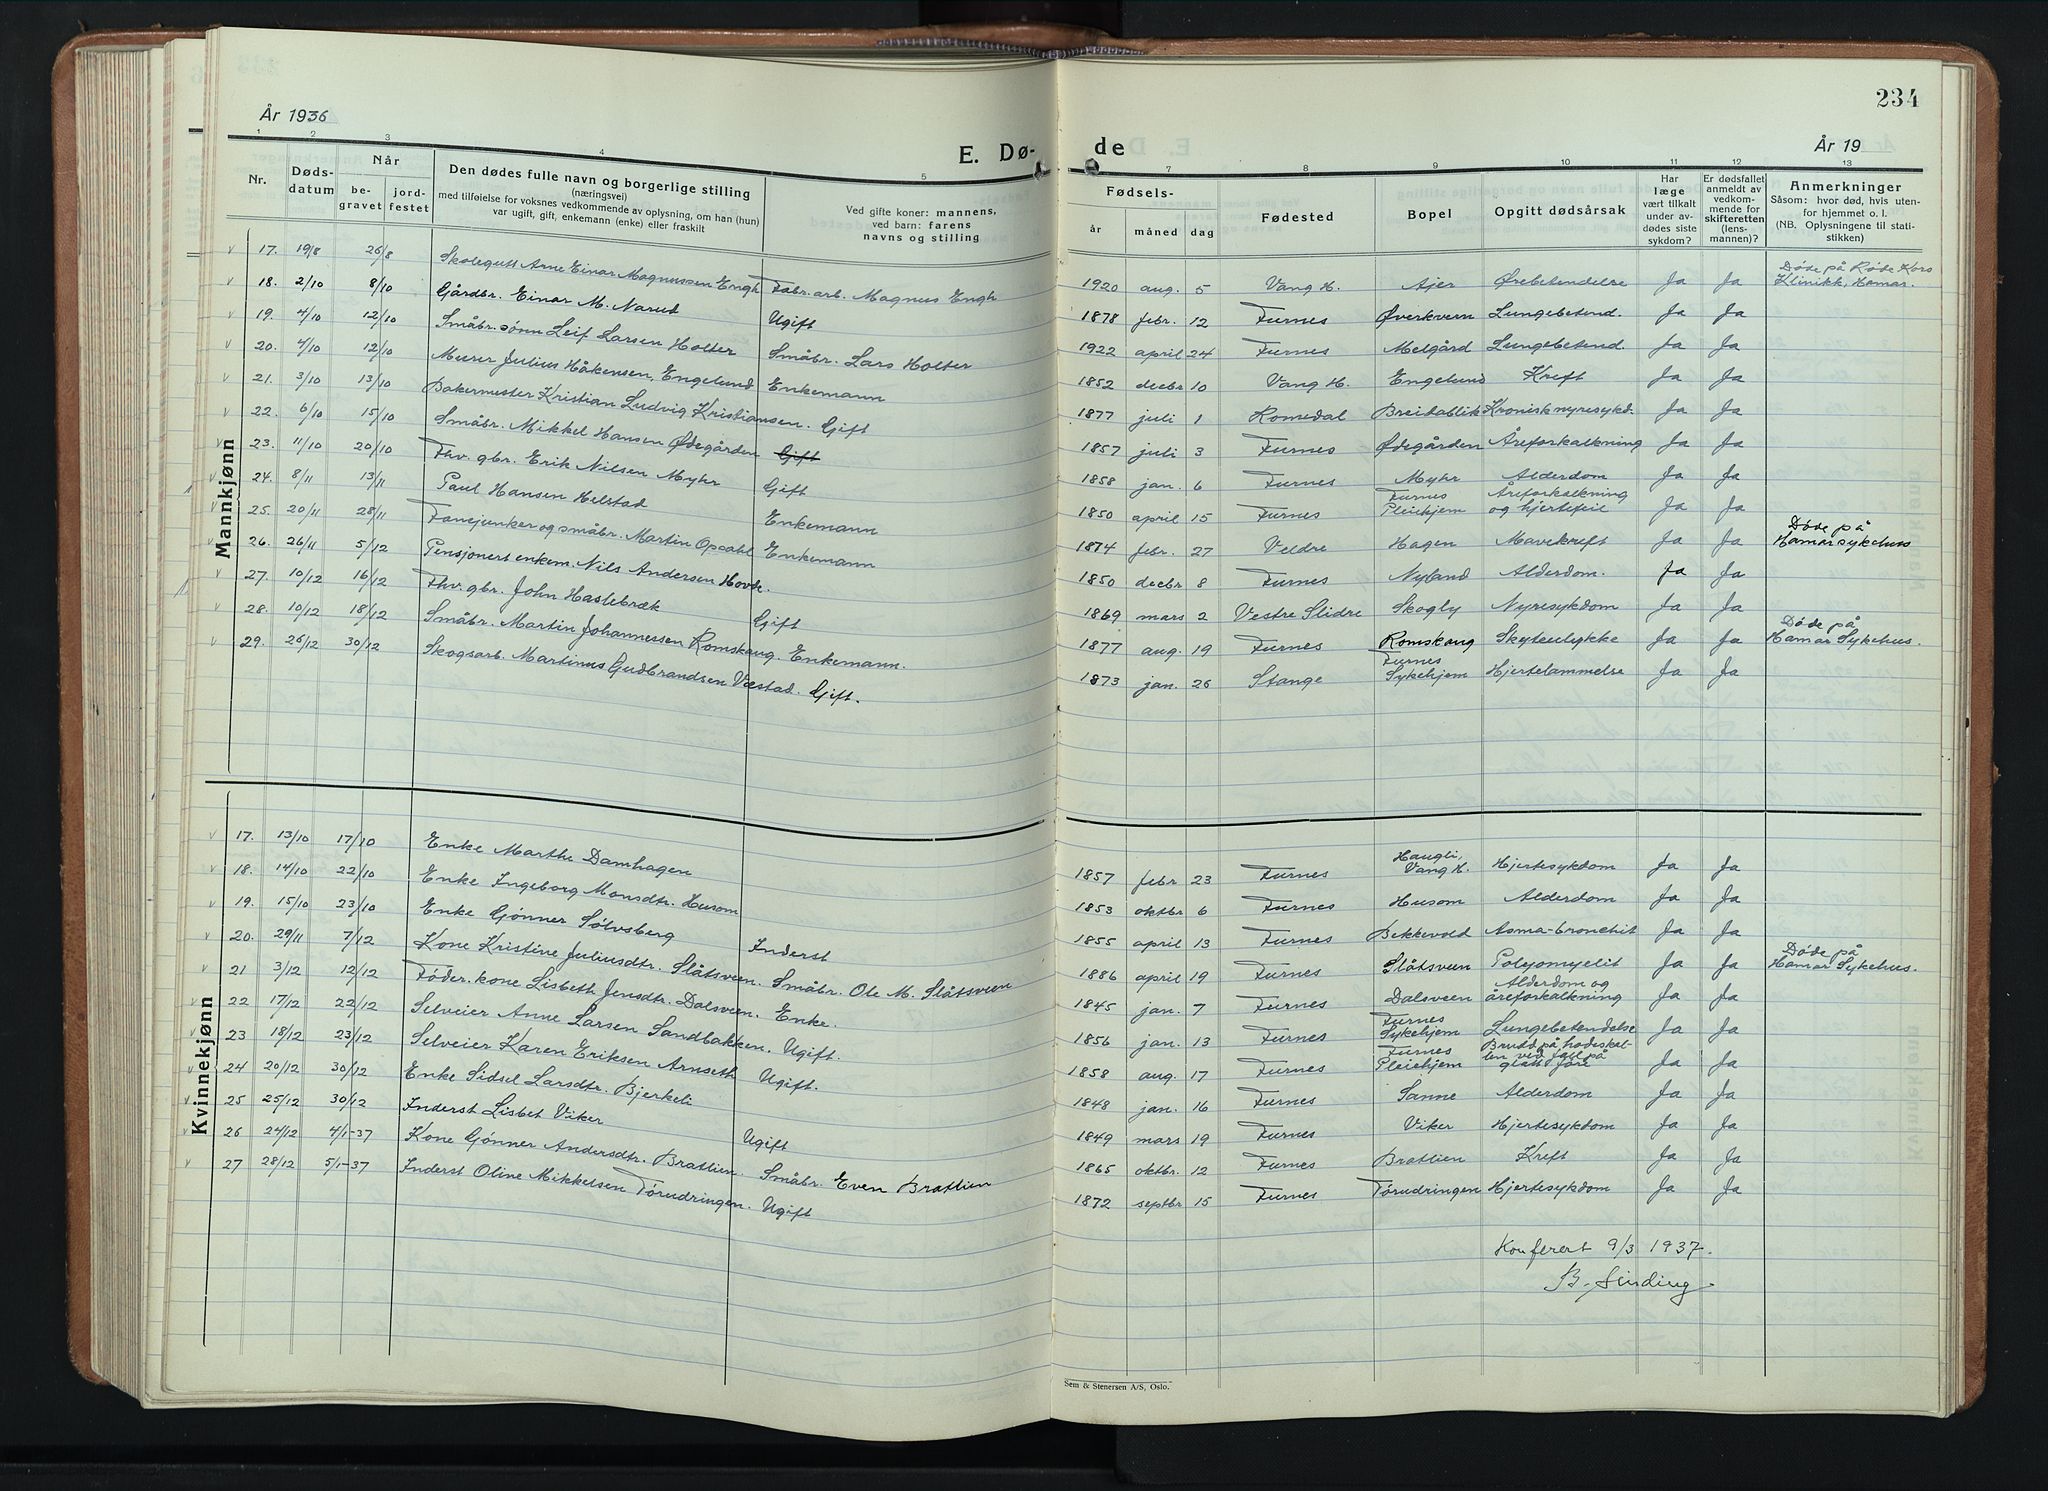 234
År 1936
E. Dø-
de
År 19
1 2 3 4 5 7 8 9 10 11 12 13
Nr.
Døds-
datum
Når
be-
gravet
jord-
festet
Den dødes fulle navn og borgerlige stilling
(næringsvei)
med tilføielse for voksnes vedkommende av oplysning, om han (hun)
var ugift, gift, enkemann (enke) eller fraskilt
Ved gifte koner: mannens,
ved barn: farens
navns og stilling
Fødsels-
år måned dag
Fødested
Bopel
Opgitt dødsårsak
Har
læge
vært tilkalt
under av-
dødes siste
sykdom?
Er dødsfallet
anmeldt av
vedkom-
mende for
skifteretten
(lens-
mannen)?
Anmerkninger
Såsom: hvor død, hvis uten-
for hjemmet o. l.
(NB. Oplysningene til stati-
stikken)
Mannkjønn
17. 19/8 26/8 Skolegutt Arne Einar Magnussen Engh Fabr. arb. Magnus Engh 1920 aug. 5 Vang H. Ajer Ørebetendelse Ja Ja Døde på Røde Kors Klinikk, Hamar.
18. 2/10 8/10 Gårdbr. Einar M. Narud Ugift 1878 febr. 12 Furnes Øverkvern Lungebetend. Ja Ja
19. 4/10 12/10 Småbr. sønn Leif Larsen Holter Småbr. Lars Holter 1922 april 24 Furnes Melgård Lungebetend. Ja Ja
20. 4/10 12/10 Murer Julius Håkensen, Engelund Enkemann 1852 decbr 10 Vang H. Engelund Kreft Ja Ja
21. 3/10 13/10 Bakermester Kristian Ludvig Kristiansen. Gift 1877 juli 1 Romedal Breidablik Kronisk nyresykd. Ja Ja
22. 6/10 15/10 Småbr. Mikkel Hansen Ødegården Gift 1857 juli 3 Furnes Ødegården Åreforkalkning Ja Ja
23. 11/10 20/10 Fhv. gbr. Erik Nilsen Myhr Gift 1858 jan. 6 Furnes Myhr Alderdom Ja Ja
24. 8/11 13/11 Paul Hansen Helstad Enkemann 1850 april 15 Furnes Furnes Pleiehjem Åreforkalkning og hjertefeil Ja Ja
25. 20/11 28/11 Fanejunker og småbr. Martin Opdahl Enkemann 1874 febr. 27 Veldre Hagen Mavekreft Ja Ja Døde på Hamar sykehus
26. 26/11 5/12 Pensjonert enkem. Nils Andersen Hovde. 1850 decbr 8 Furnes Nyland Alderdom. Ja Ja
27. 10/12 16/12 Fhv. gbr. John Haslebræk Gift 1869 mars 2 Vestre Slidre Skogly Nyresykdom Ja Ja
28. 10/12 18/12 Småbr. Martin Johannessen Romskaug. Enkemann. 1877 aug. 19 Furnes Romskaug Skyteulykke Ja Ja Døde på Hamar Sykehus.
29. 26/12 30/12 Skogsarb. Martinus Gudbrandsen Væstad. Gift. 1873 jan. 26 Stange Furnes Sykehjem Hjertelammelse Ja Ja
Kvinnekjønn
17. 13/10 17/10 Enke Marthe Damhagen 1857 febr 23 Furnes Haugli, Vang H. Hjertesykdom Ja Ja
18. 14/10 22/10 Enke Ingeborg Monsdtr. Husom 1853 oktbr 6 Furnes Husom Alderdom Ja Ja
19. 15/10 23/10 Enke Gønner Sølvsberg Inderst 1855 april 13 Furnes Bekkevold Asma-bronchit Ja Ja
20. 29/11 7/12 Kone Kristine Juliusdtr. Slåtsveen. Småbr. Ole M. Slåtsveen 1886 april 19 Furnes Slåtsveen Polyomyelit Ja Ja Døde på Hamar Sykehus.
21 3/12 12/12 Føder. kone Lisbeth Jensdtr. Dalsveen. Enke. 1845 jan. 7 Furnes Dalsveen Alderdom og åreforkalkning Ja Ja
22 17/12 22/12 Selveier Anne Larsen Sandbakken. Ugift. 1856 jan. 13 Furnes Furnes Sykehjem Lungebetendelse Ja Ja
23 18/12 23/12 Selveier Karen Eriksen Arnseth Ugift. 1858 aug. 17 Furnes Furnes Pleiehjem Brudd på hodeskal-len ved fall på glatt føre Ja Ja
24 20/12 30/12 Enke Sidsel Larsdtr. Bjerkeli 1848 jan. 16 Furnes Sanne Alderdom Ja Ja
25 25/12 30/12 Inderst Lisbet Viker Ugift 1849 mars 19 Furnes Viker Hjertesykdom Ja Ja
26 24/12 4/1-37 Kone Gønner Andersdtr. Bratlien. Småbr. Even Bratlien 1865 oktbr. 12 Furnes Bratlien Kreft Ja Ja
27 28/12 5/1-37 Inderst Oline Mikkelsen Tørudringen. Ugift 1872 septbr 15 Furnes Tørudringen Hjertesykdom Ja Ja
Konferert 9/3 1937.
B. Sinding.
Sem & Stenersen A/S, Oslo.